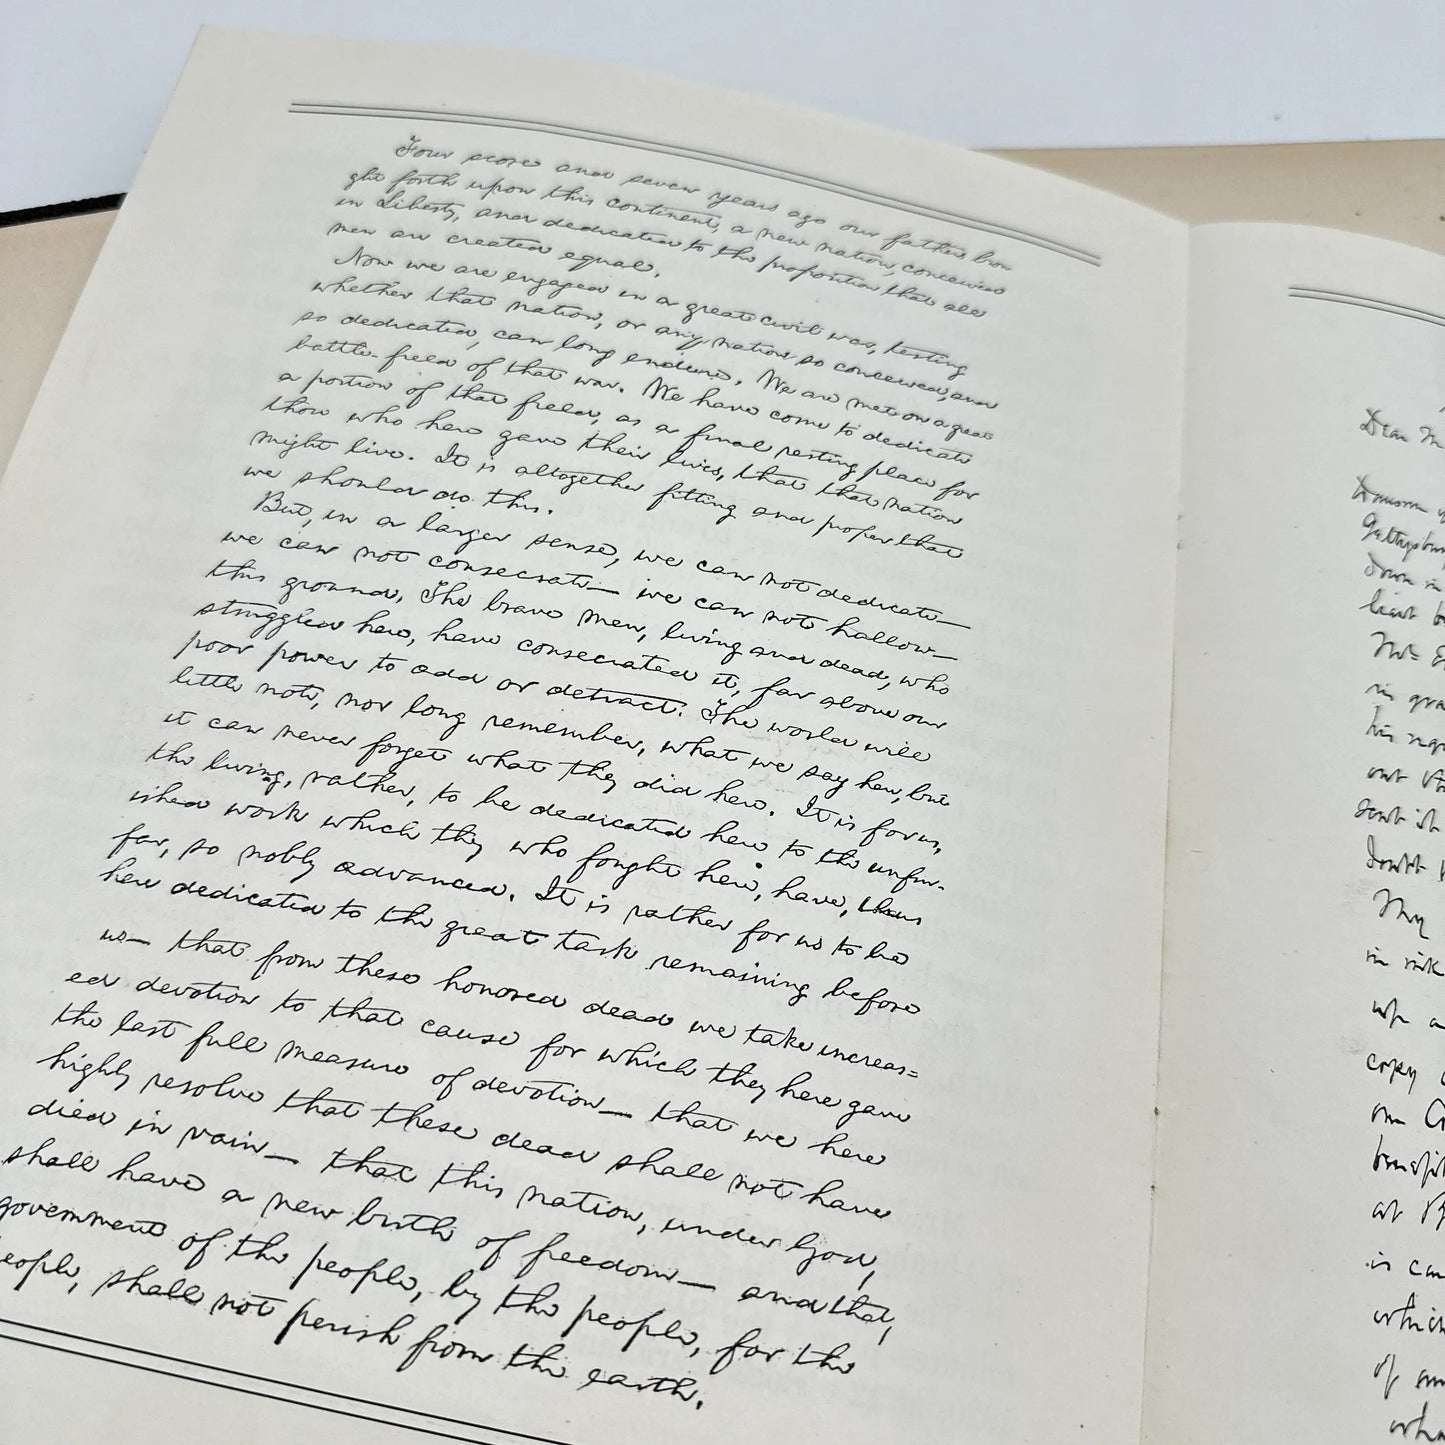 Four score and seven years ago our fathers brou
ght forth upon this continent, a new nation, conceived
in Liberty, and dedicated to the proposition that all
men are created equal.
Now we are engaged in a great civil war, testing
whether that nation, or any nation so conceived, and
so dedicated, can long endure. We are met on a great
battle-field of that war. We have come to dedicate
a portion of that field, as a final resting place for
those who here gave their lives, that that nation
might live. It is altogether fitting and proper that
we should do this.
But, in a larger sense, we can not dedicate—
we can not consecrate— we can not hallow—
this ground. The brave men, living and dead, who
struggled here, have consecrated it, far above our
poor power to add or detract. The world will
little note, nor long remember, what we say here, but
it can never forget what they did here. It is for us,
the living, rather, to be dedicated here to the unfin-
ished work which they who fought here, have, thus
far, so nobly advanced. It is rather for us to be
here dedicated to the great task remaining before
us— that from these honored dead we take increas=
ed devotion to that cause for which they here gave
the last full measure of devotion— that we here
highly resolve that these dead shall not have
died in vain— that this nation, under God,
shall have a new birth of freedom— and that,
government of the people, by the people, for the
people, shall not perish from the earth.
Dear M
Gettysbur
down in
his
out
sent it
doubt
My
in ink
up a
copy
on
benefit
at
is
which
of
wha